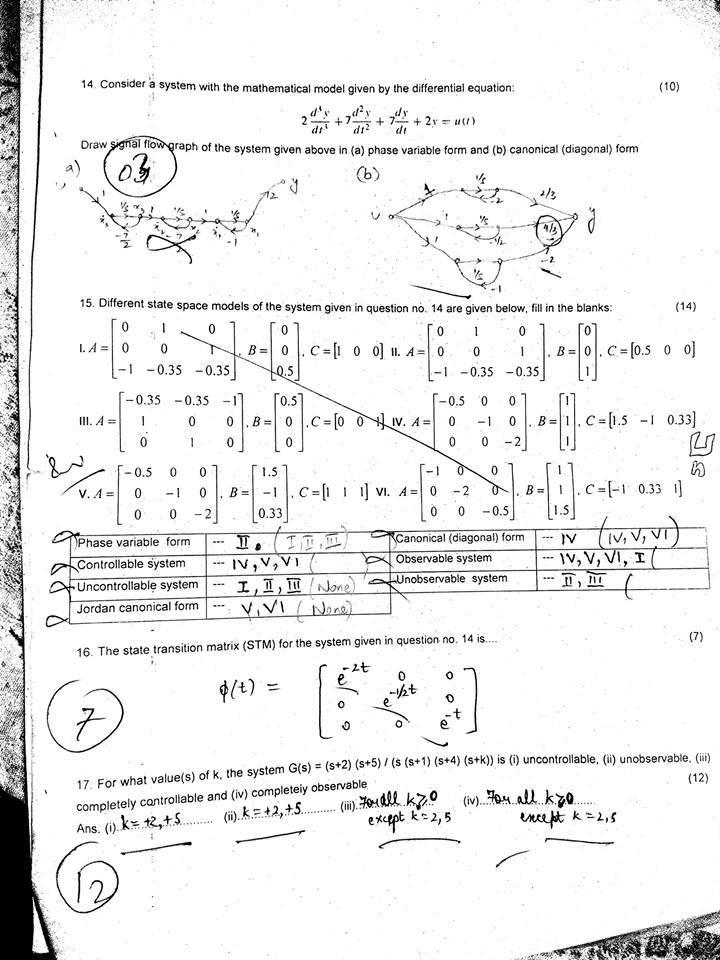 14. Consider a system with the mathematical model given by the differential equation: (10)
2 d³y/dt³ + 7 d²y/dt² + 7 dy/dt + 2y = u(t)
Draw signal flow graph of the system given above in (a) phase variable form and (b) canonical (diagonal) form
a) 03 (b)
1 1/s x₃ 1 1/s 1 1/s 2 y
-7/2 -7/2 -1 x₁
u 1 1/s -2 2/3 y
1 1/s -1/2 4/3
1 1/s -1 -2
15. Different state space models of the system given in question no. 14 are given below, fill in the blanks: (14)
I. A = [0 1 0; 0 0 1; -1 -0.35 -0.35], B = [0; 0; 0.5], C = [1 0 0] II. A = [0 1 0; 0 0 1; -1 -0.35 -0.35], B = [0; 0; 1], C = [0.5 0 0]
III. A = [-0.35 -0.35 -1; 1 0 0; 0 1 0], B = [0.5; 0; 0], C = [0 0 1] IV. A = [-0.5 0 0; 0 -1 0; 0 0 -2], B = [1; 1; 1], C = [1.5 -1 0.33]
V. A = [-0.5 0 0; 0 -1 0; 0 0 -2], B = [1.5; -1; 0.33], C = [1 1 1] VI. A = [-1 0 0; 0 -2 0; 0 0 -0.5], B = [1; 1; 1.5], C = [-1 0.33 1]
Phase variable form --- II. (I, II, III) Canonical (diagonal) form --- IV (IV, V, VI)
Controllable system --- IV, V, VI ( Observable system --- IV, V, VI, I (
Uncontrollable system --- I, II, III (None) Unobservable system --- II, III (
Jordan canonical form --- V, VI (None)
16. The state transition matrix (STM) for the system given in question no. 14 is.... (7)
ϕ(t) = [e^-2t 0 0; 0 e^-1/2t 0; 0 0 e^-t]
7
17. For what value(s) of k, the system G(s) = (s+2) (s+5) / (s (s+1) (s+4) (s+k)) is (i) uncontrollable, (ii) unobservable, (iii)
completely controllable and (iv) completely observable (12)
Ans. (i) k = +2, +5 (ii) k = +2, +5 (iii) For all k≥0 except k = 2, 5 (iv) For all k≥0 except k = 2, 5
12